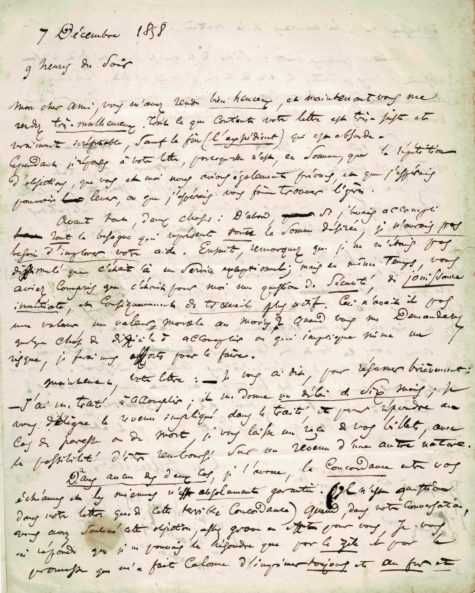 7 Décembre 1858
9 heures du Soir
Mon cher ami, vous m'avez rendu bien heureux, et maintenant vous me
rendez très-malheureux. Tout ce que contient votre lettre est très-juste et
vraiment irréfutable, Sauf la fin (l'expédient) qui est absurde.
Cependant j'ai à votre lettre, parce que c'est, en Somme, que la répétition
d'objections, que vous et moi nous avions également prévues, et que j'espérais
pouvoir lever, ou que j'espérais vous faire trouver légères.
Avant tout, deux choses : D'abord Si j'avais accompli
Tout la besogne qui représente toute la Somme désirée, je n'aurais pas
besoin d'implorer votre aide. Ensuite, remarquez que je ne m'étais pas
dissimulé que c'était là un Service exceptionnel ; mais en même temps, vous
aviez compris que c'était pour moi une question de Sécurité, de jouissance
immédiate, et conséquemment de travail plus actif. Ceci n'avait-il pas
une valeur, une valeur morale au moins ? Quand vous me demanderez
quelque chose de difficile à accomplir ou qui implique même un
risque, je ferai mes efforts pour le faire.
Maintenant, votre lettre : — Je vous ai dit, pour résumer brièvement :
— J'ai un traité à accomplir ; je me donne un délai de Six mois ; je
vous délègue le revenu impliqué dans le traité et pour répondre au
cas de paresse ou de mort, je vous laisse un reçu de vos billets, avec
la possibilité d'être remboursé Sur un revenu d'une autre nature.
Dans aucun des deux cas, je l'avoue, la Concordance entre vos
échéances et les miennes n'est absolument garantie. Il n'est question
dans votre lettre que de cette terrible Concordance ; Quand dans votre Conversation,
vous avez Soulevé cette objection, assez grave en effet pour vous, je vous
ai répondu que je ne pouvais la résoudre que par le zèle et par la
promesse que m'a faite Calonne d'imprimer toujours et au fur et